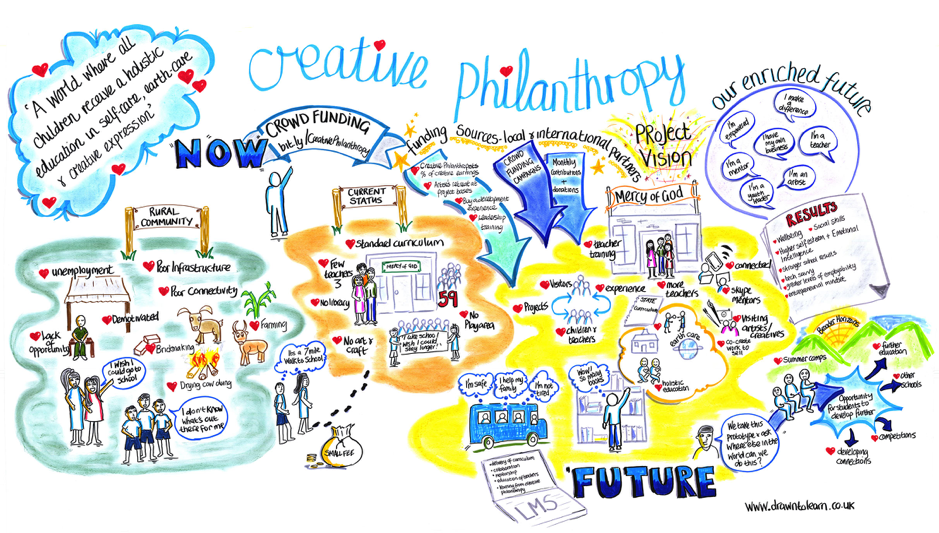 Creative Philanthropy
"A world where all
children receive a holistic
education in self-care, earth-care
& creative expression"
"NOW"
CROWD FUNDING
bit.ly/CreativePhilanthropy
Funding Sources-local & international partners
Creative Philanthropists
% of creative earnings
Buy a development
experience
Leadership
training
CROWD
FUNDING
CAMPAIGNS
Monthly
Contributions
+
donations
PROJECT
VISION
our enriched future
I make
a
difference
I'm
empowered
I have
my own
business
I'm a
teacher
I'm a
mentor
I'm an
artist
I'm a
youth
leader
RESULTS
Wellbeing
Social skills
Higher self esteem + Emotional
Intelligence
Stronger school results
tech savvy
greater levels of employability
entrepreneurial mindset
RURAL
COMMUNITY
unemployment
Poor Infrastructure
Poor Connectivity
Demotivated
lack of
Opportunity
Brickmaking
Farming
Drying cow dung
I wish I
could go to
school
I don't know
what's out
there for me
CURRENT
STATUS
Standard curriculum
Few
teachers
3
MERCY of GOD
59
No library
No
Play area
No art &
craft
I like school
I wish I could
stay longer
Its a 7 mile
walk to School
SMALL FEE
Mercy of God
teacher
training
connected
Visitors
experience
more
teachers
Skype
mentors
Projects
STATE
curriculum
children &
teachers
earth care
Visiting
artists/
creatives
co-create
work to
sell
holistic
education
I'm safe
I help my
family
I'm not
tired
Wow!
so many
books
delivery of curriculum
collaboration
mentorship
education of teachers
learning from creative
philanthropy
LMS
"FUTURE
We take this
Prototype & ask
where else in the
world can we
do this?
Broader Horizons
Summer camps
further
education
other
schools
Opportunity
for students to
develop further
competitions
developing
connections
www.drawntolearn.co.uk